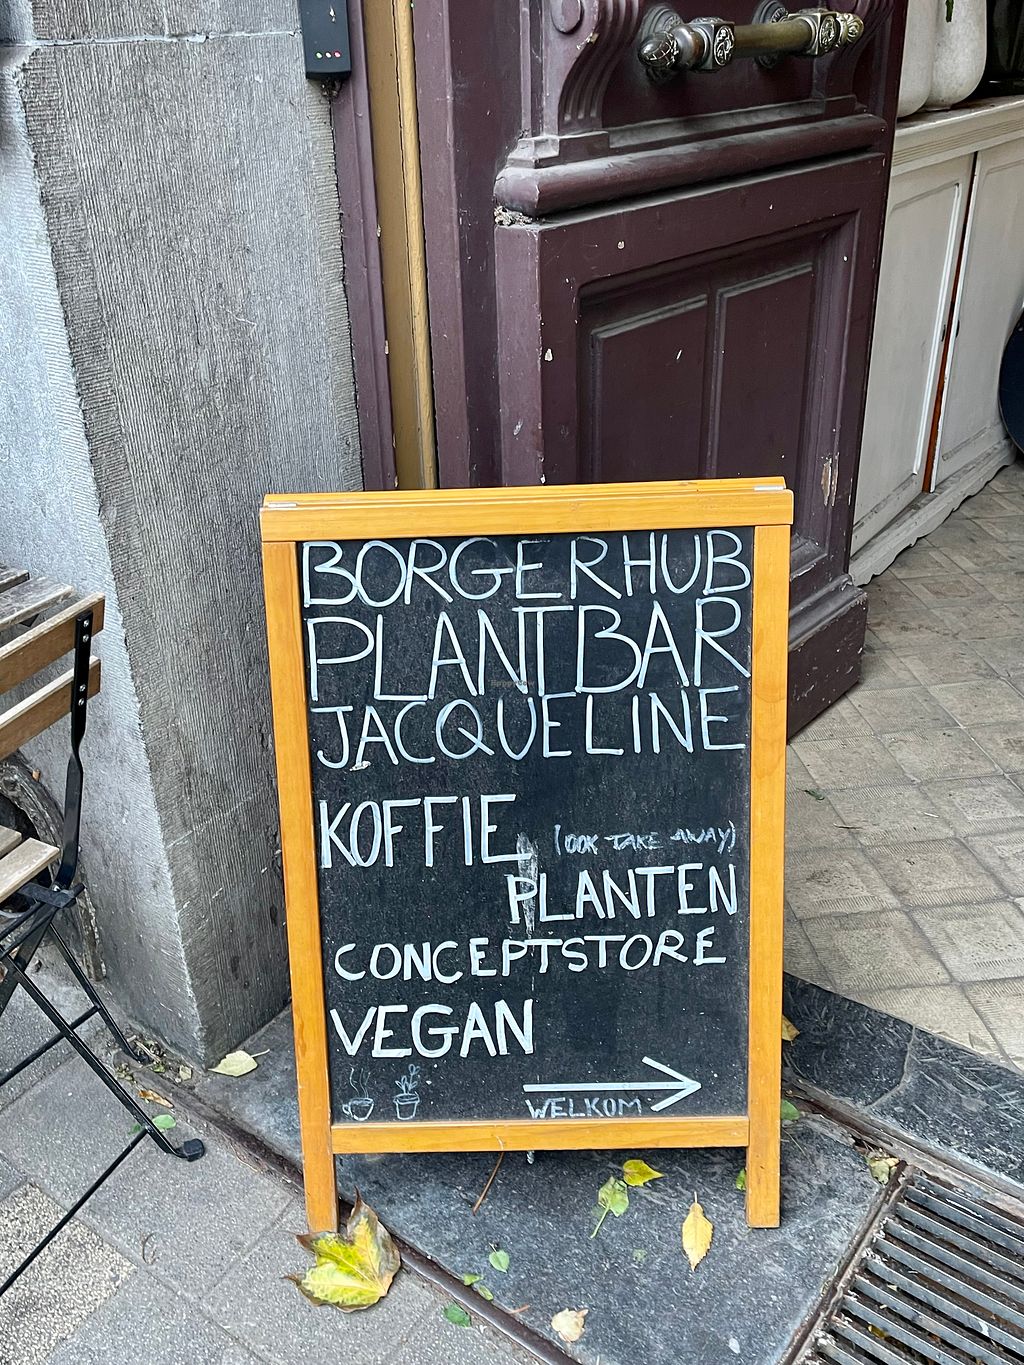 BORGERHUB
PLANTBAR
JACQUELINE
KOFFIE (OOK TAKE AWAY)
PLANTEN
CONCEPTSTORE
VEGAN
WELKOM